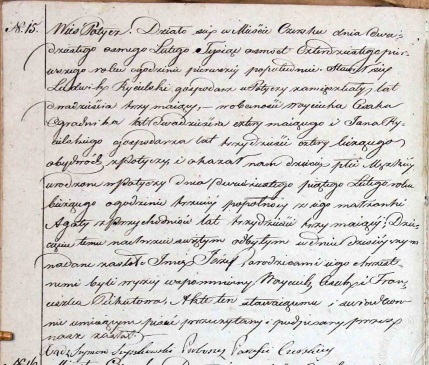 N. 15.
Wieś Potycz. Działo się w Mieście Czersku dnia dwu-
dziestego osmego Lutego Tysiąc osmset Czterdziestego pier-
wszego roku o godzinie pierwszej popołudniu. Stawił się
Ludwik Rykulski gospodarz w Potyczy zamieszkały, lat
dwadzieścia trzy maiący, w obecności Woyciecha
Ogrodnika lat dwadzieścia cztery maiącego i Jana Ry-
kulskiego gospodarza lat trzydzieści cztery liczącego
obydwóch z Potyczy i okazał nam dziecię płci Męzkiey
urodzone w Potyczy dnia dwudziestego piątego Lutego roku
bieżącego o godzinie trzeciey popołnocy z iego małżonki
Agaty z lat trzydzieści trzy maiącey; Dzie-
cięciu temu na chrzcie świętym odbytym w dniu dzisieyszym
nadane zostało Imię Józef, a rodzicami iego chrzest-
nemi byli wyżey wspomniony Woyciech i Fran-
ciszka. Akt ten stawaiącemu i świadkom
nieumieiącym pisać przeczytany i podpisany przez
nas został.
Xiądz Szymon Proboszcz Parafii Czerskiey
N. 16.